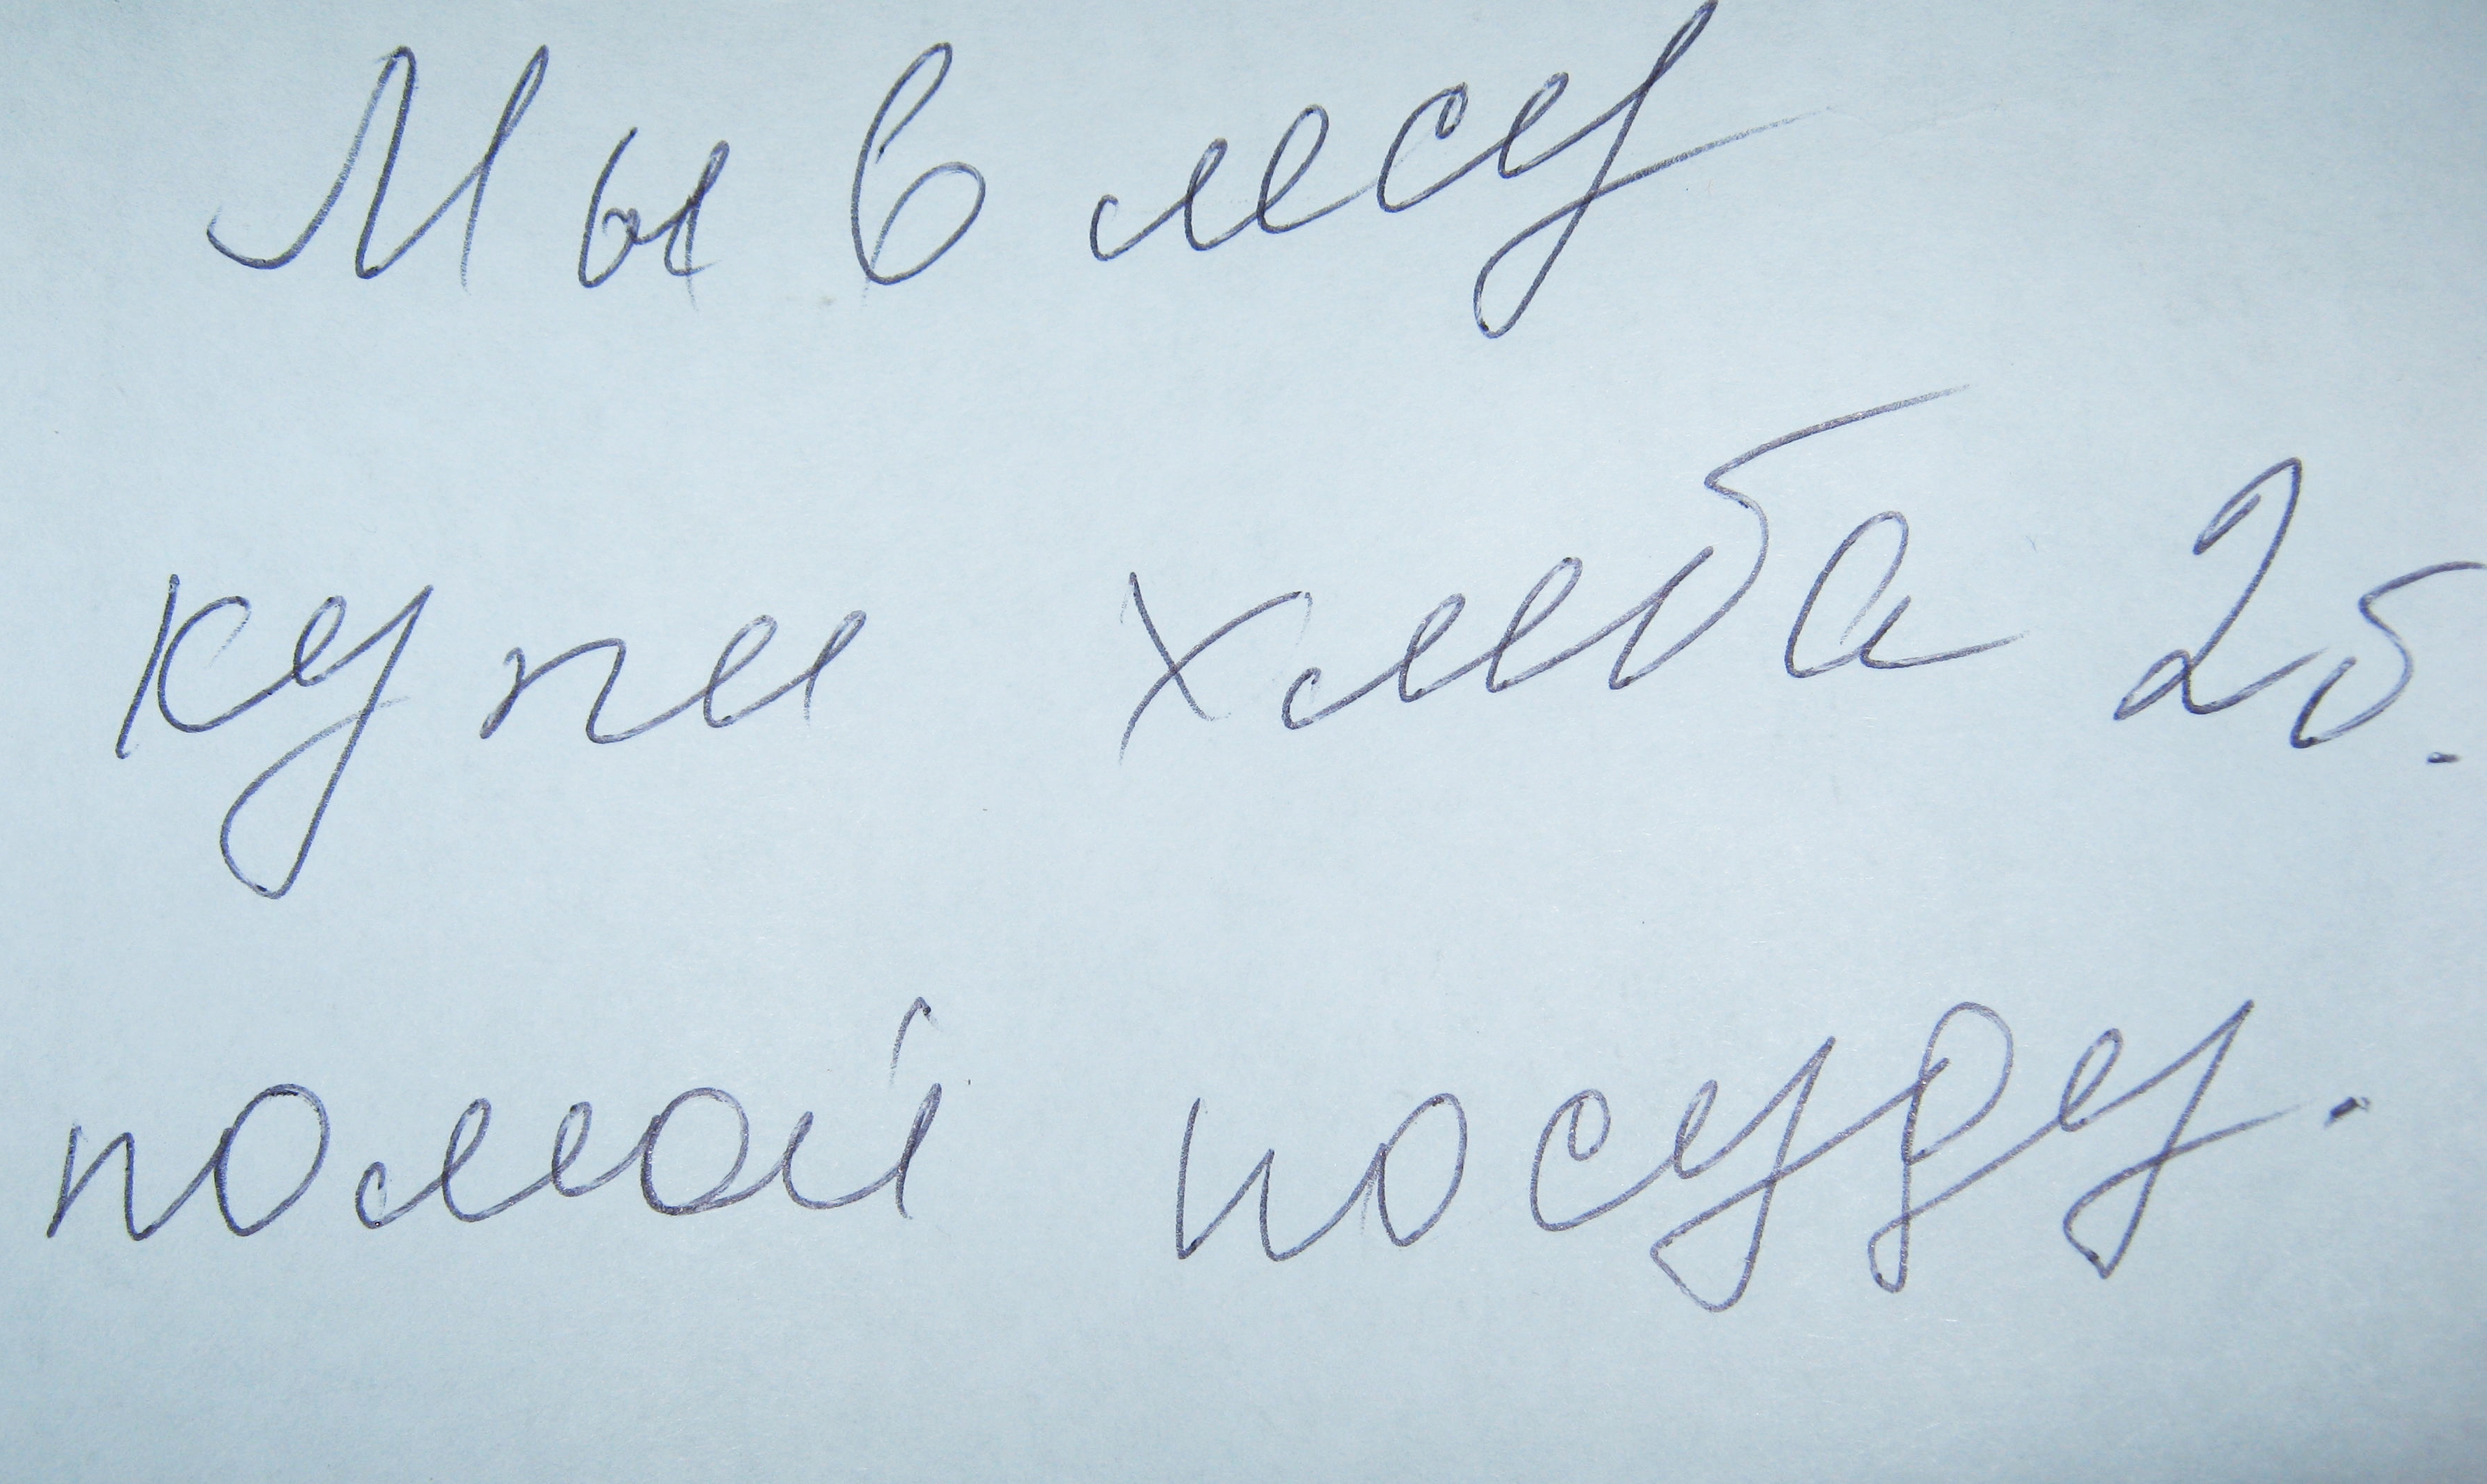 Мы в лесу
купи хлеба 2б.
помой посуду.